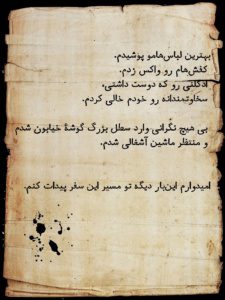 بهترین لباس‌هامو پوشیدم.
کفش‌هام رو واکس زدم.
ادکلنی رو که دوست داشتی.
سخاوتمندانه رو خودم خالی کردم.
بی هیچ نگرانی وارد سطل بزرگ گوشهٔ خیابون شدم
و منتظر ماشین آشغالی شدم.
امیدوارم این‌بار دیگه تو مسیر این سفر پیدات کنم.